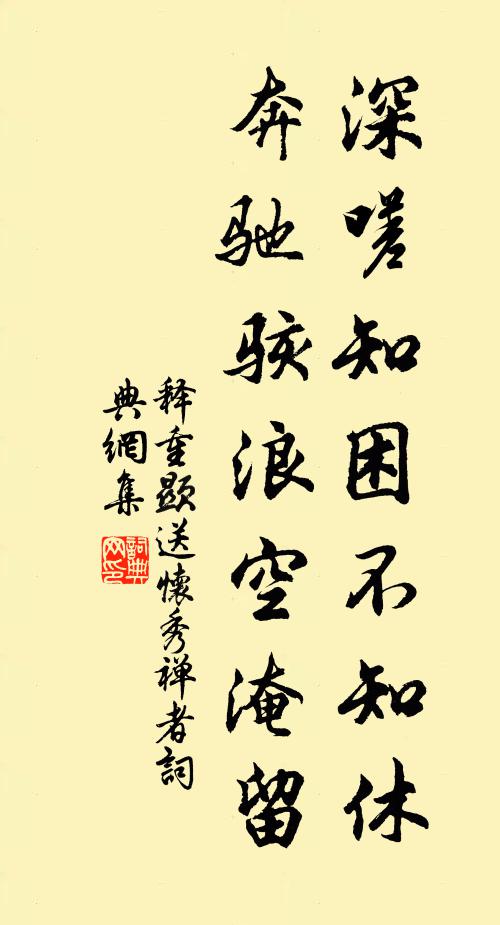 深嗟知困不知休
奔驰骇浪空淹留
释重顯送懷秀禅者詞
典網集
詞典
网印